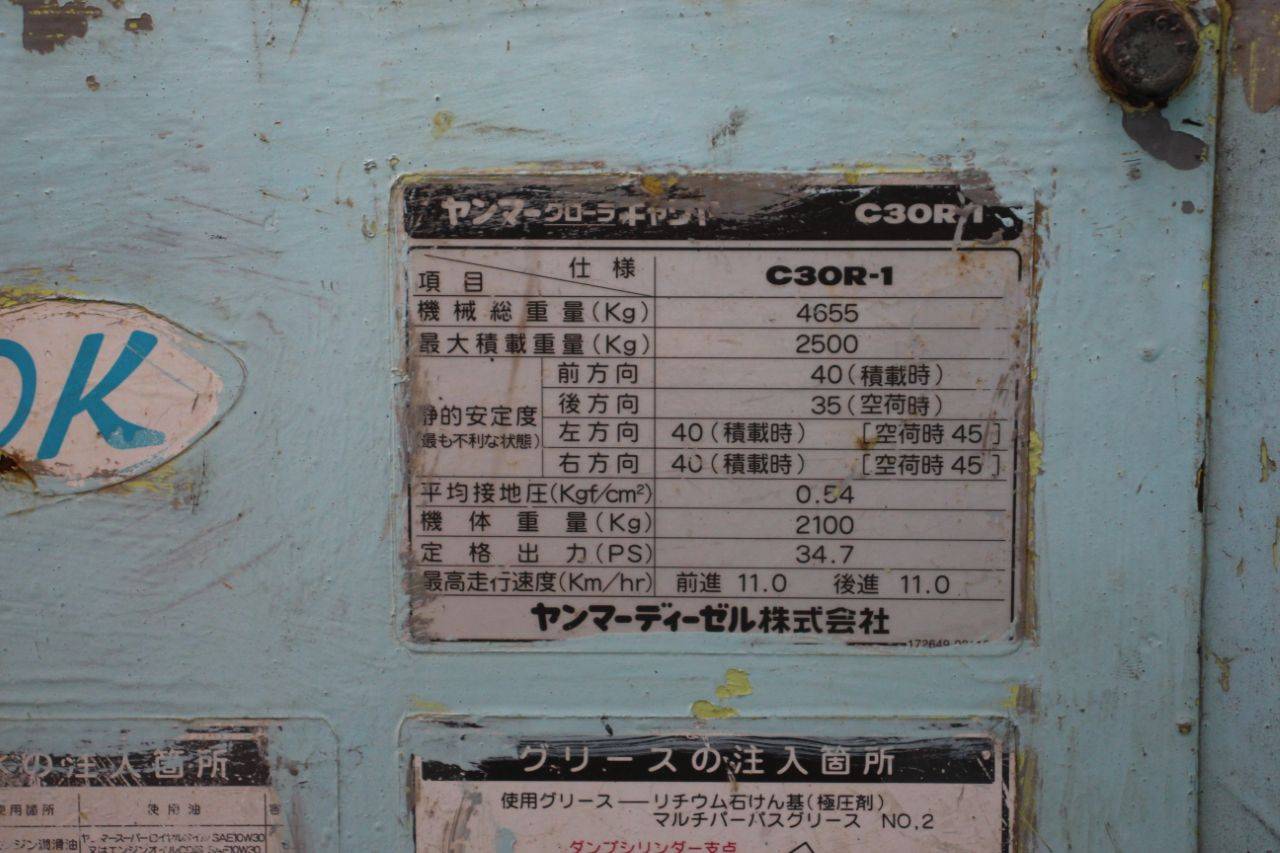 ヤンマークローラキャリヤ C30R-1
項目 仕様 C30R-1
機械総重量(Kg) 4655
最大積載重量(Kg) 2500
静的安定度(最も不利な状態)
前方向 40(積載時)
後方向 35(空荷時)
左方向 40(積載時) [空荷時45]
右方向 40(積載時) [空荷時45]
平均接地圧(Kgf/cm²) 0.54
機体重量(Kg) 2100
定格出力(PS) 34.7
最高走行速度(Km/hr) 前進 11.0 後進 11.0
ヤンマーディーゼル株式会社
OK
の注入箇所
使用箇所 使用油
ジン潤滑油
SAE10W30
グリースの注入箇所
使用グリース──リチウム石けん基(極圧剤)
マルチパーパスグリース NO,2
ダンプシリンダー支点